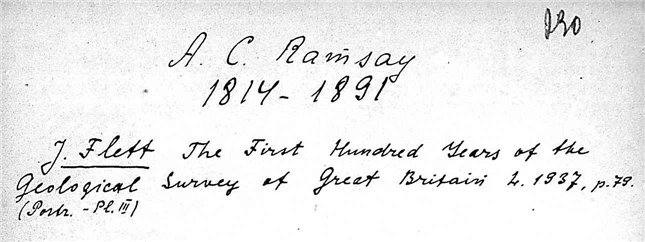 A. C. Ramsay
1814 - 1891
J. Flett The First Hundred Years of the
Geological Survey of Great Britain L. 1937, p. 79.
(Portr. - Pl. III)